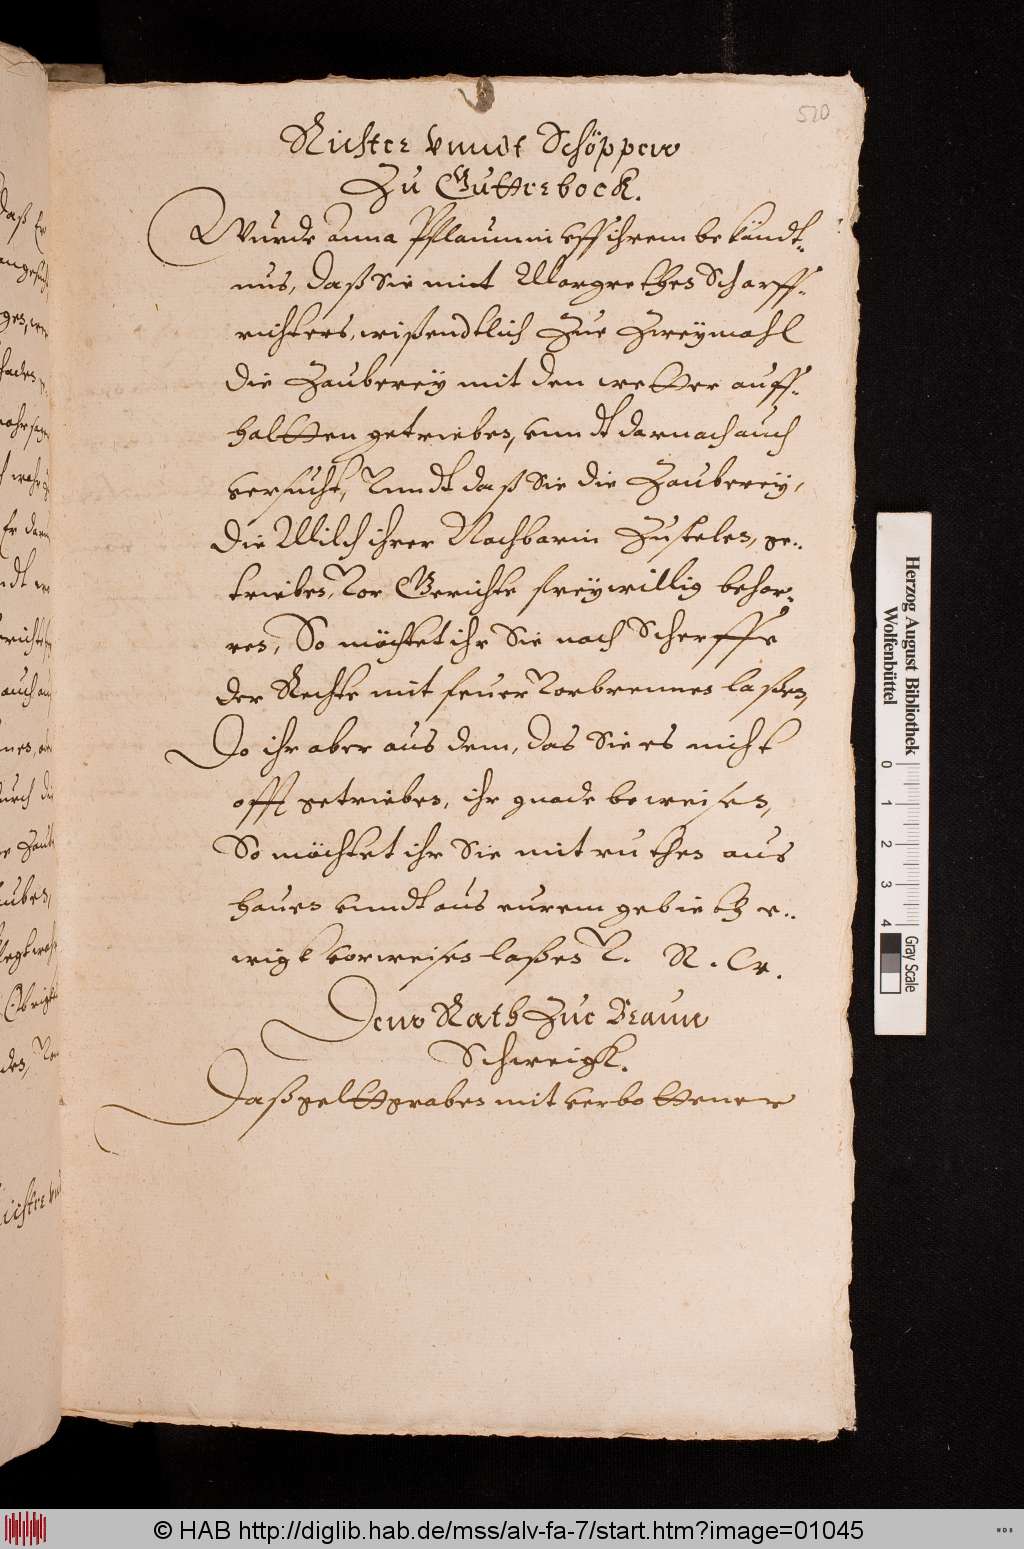 520
Richter vnndt Schöppenn
Zu Gutterbock.
Wurde Anna Pflaumin vff ihrem bekändt-
nus, daß Sie mit Margrethen Scharff-
richters, wißendtlich Zue Zweymahl
die Zauberey mit den wetter auff-
haltten getrieben, vnndt darnach auch
versucht, Vnndt daß Sie die Zauberey,
die Milch ihrer Nachbarin Zustelen, ge-
trieben, Vor Gerichte freywillig behar-
ren, So möchtet ihr Sie nach Scherffe
der Rechte mit feuer Vorbrennen laßen,
Do ihr aber aus dem, das Sie es nicht
offt getrieben, ihr gnade beweisen,
So möchtet ihr Sie mit ruthen aus
hauen vnndt aus eurem gebieth e-
wigk vorweisen laßen V. R. W.
Denn Rath Zue Braun
Schweigk.
Daß geltt graben mit verbottener
Richter vnd
Herzog August Bibliothek
Wolfenbüttel
0 1 2 3 4
Gray Scale
© HAB http://diglib.hab.de/mss/alv-fa-7/start.htm?image=01045